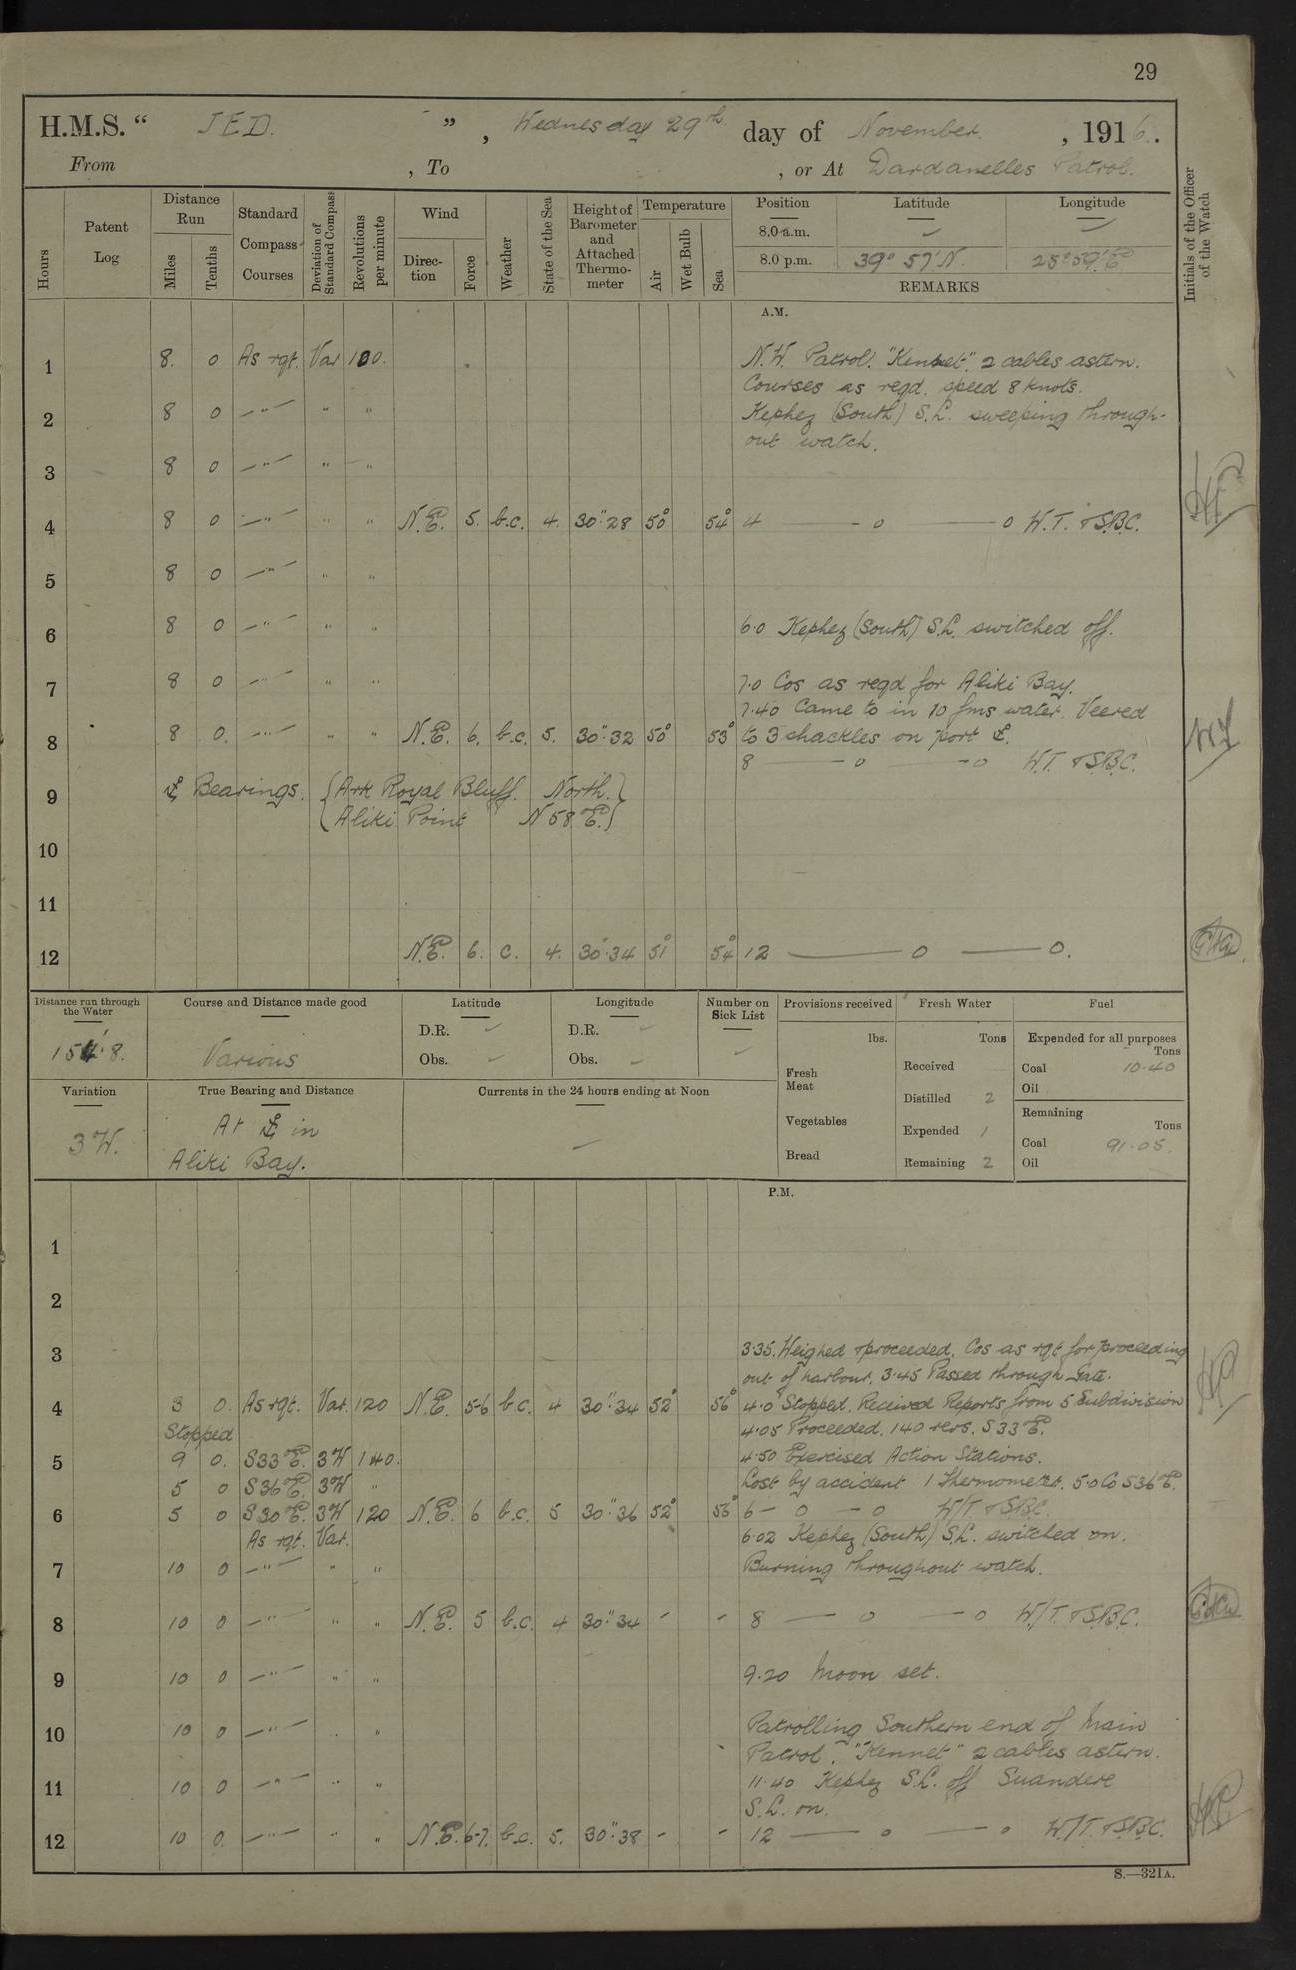 29
H.M.S. " JED. " , Wednesday 29th day of November , 1916.
From , To , or At Dardanelles Patrol.
Hours
Patent Log
Distance Run
Miles
Tenths
Standard Compass Courses
Deviation of Standard Compass
Revolutions per minute
Wind
Direction
Force
Weather
State of the Sea
Height of Barometer and Attached Thermometer
Temperature
Air
Wet Bulb
Sea
Position Latitude Longitude
8.0 a.m.
8.0 p.m. 39° 57' N. 25° 59' E
REMARKS
Initials of the Officer of the Watch
A.M.
1 8. 0 As rqt. Var 100. N.W. Patrol. "Kennet". 2 cables astern.
Courses as regd. speed 8 knots.
2 8 0 —"— " " Kephez (South) S.L. sweeping through-
out watch.
3 8 0 —"— " "
4 8 0 —"— " " N.E. 5. b.c. 4. 30".28 50° 54° 4 — o — o W.T. & S.B.C.
5 8 0 —"— " "
6 8 0 —"— " " 6.0 Kephez (South) S.L. switched off.
7 8 0 —"— " " 7.0 Cos as regd for Aliki Bay.
7.40 Came to in 10 fms water. Veered
8 8 0. —"— " " N.E. 6. b.c. 5. 30".32 50° 53° to 3 shackles on port ⚓.
8 — o — o W.T. & S.B.C.
9 ⚓ Bearings. {Ark Royal Bluff. North.}
{Aliki Point N 58 E.}
10
11
12 N.E. 6. c. 4. 30".34 51° 54° 12 — o — o.
Distance run through the Water
154.8.
Course and Distance made good
Various
Latitude
D.R.
Obs.
Longitude
D.R.
Obs.
Number on Sick List
Provisions received
lbs.
Fresh Meat
Vegetables
Bread
Fresh Water
Tons
Received
Distilled 2
Expended 1
Remaining 2
Fuel
Expended for all purposes
Tons
Coal 10.40
Oil
Remaining
Tons
Coal 91.05.
Oil
Variation
3 W.
True Bearing and Distance
At ⚓ in
Aliki Bay.
Currents in the 24 hours ending at Noon
P.M.
1
2
3 3.35. Weighed & proceeded. Cos as rqt for proceeding
out of harbour. 3.45 Passed through Gate.
4 3 0. As rqt. Var. 120 N.E. 5-6 b.c. 4 30".34 52° 56° 4.0 Stopped. Received Reports from 5 Subdivision
Stopped 4.05 Proceeded. 140 revs. S 33 E.
5 9 0. S33 E. 3W 140. 4.50 Exercised Action Stations.
5 0 S36 E. 3W " Lost by accident 1 Thermometer. 5.0 Co S36 E.
6 5 0 S30 E. 3W 120 N.E. 6 b.c. 5 30".36 52° 56° 6 — o — o W/T. & S.B.C.
As rqt. Var. 6.02 Kephez (South) S.L. switched on.
7 10 0 —"— " " Burning throughout watch.
8 10 0 —"— " " N.E. 5 b.c. 4 30".34 - - 8 — o — o W/T. & S.B.C.
9 10 0 —"— " " 9.20 Moon set.
10 10 0 —"— " " Patrolling Southern end of Main
Patrol. "Kennet" 2 cables astern.
11 10 0 —"— " " 11.40 Kephez S.L. off Suandere
S.L. on.
12 10 0. —"— " " N.E. 6-7. b.c. 5. 30".38 - - 12 — o — o W/T. & S.B.C.
S.—321A.